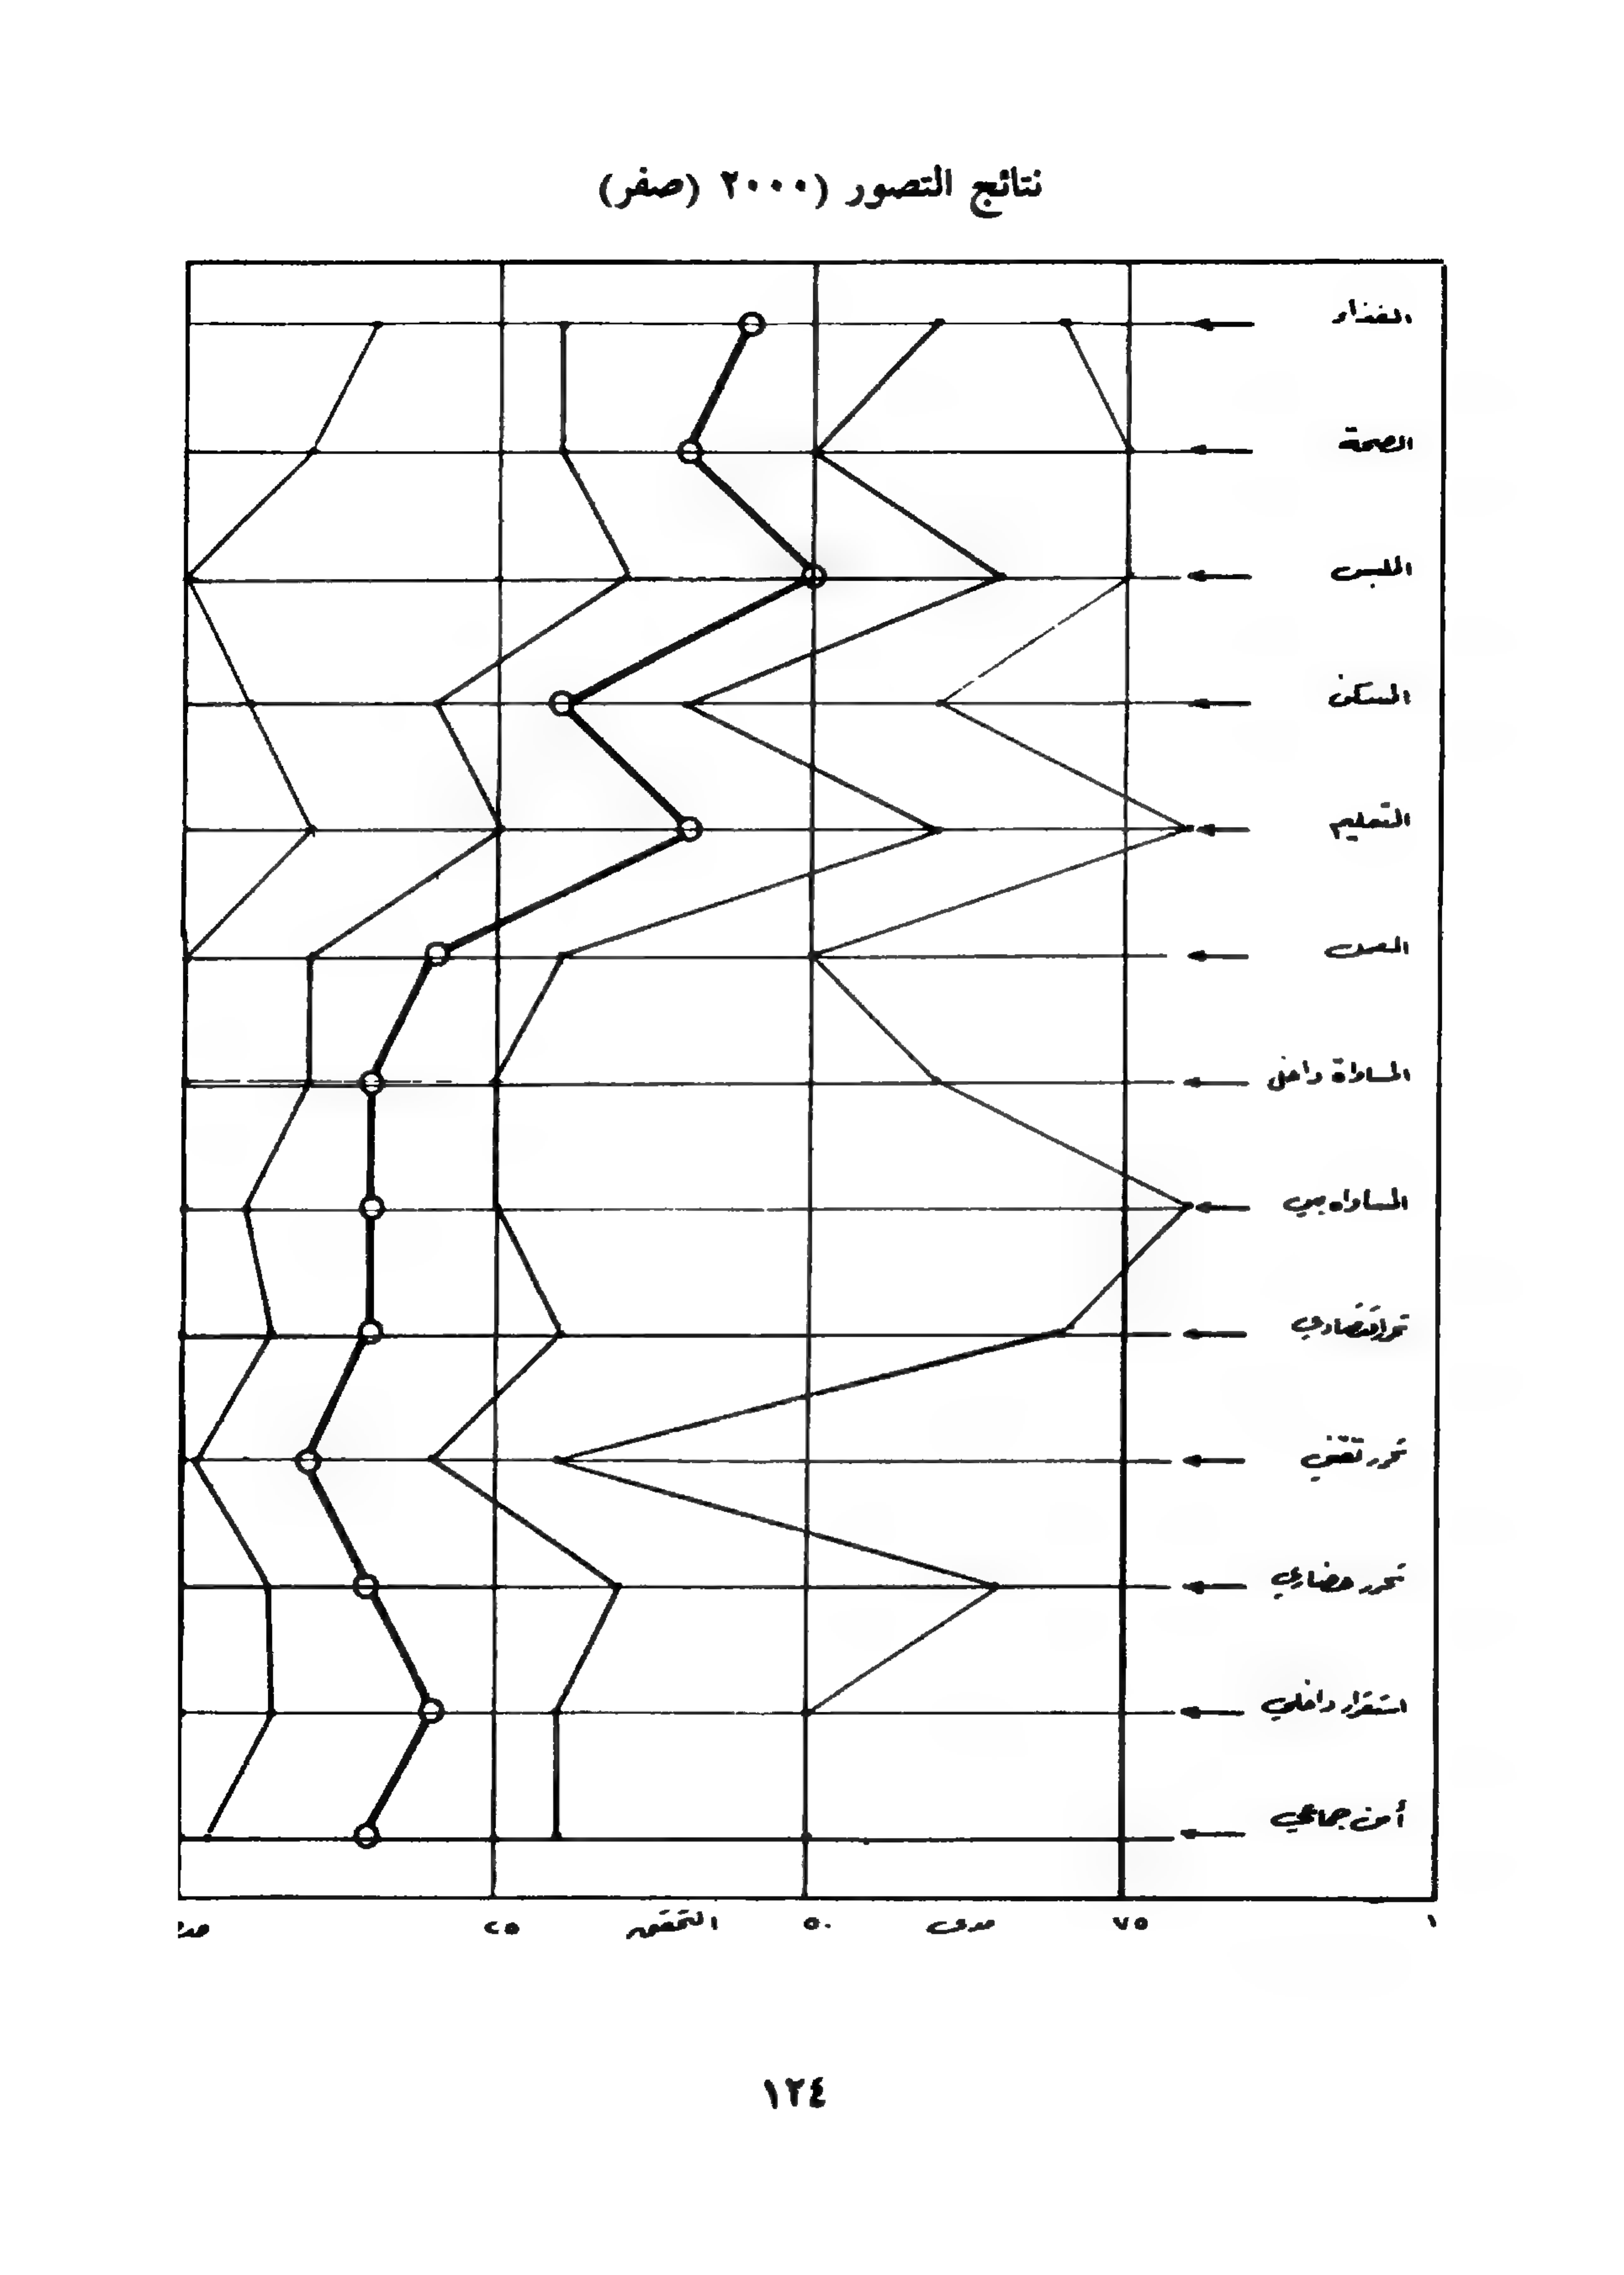 نتائج التصور (٢٠٠٠ (صفر)
الغذاء
الصحة
الملبس
المسكن
التعليم
المساواة داخل
المساواه بين
تحرر اقتصادي
تحرر تقني
تحرر حضاري
استقرار داخلي
أمن جماعي
٢٥ التحقق ٥٠ مدى ٧٥ ١
١٢٤